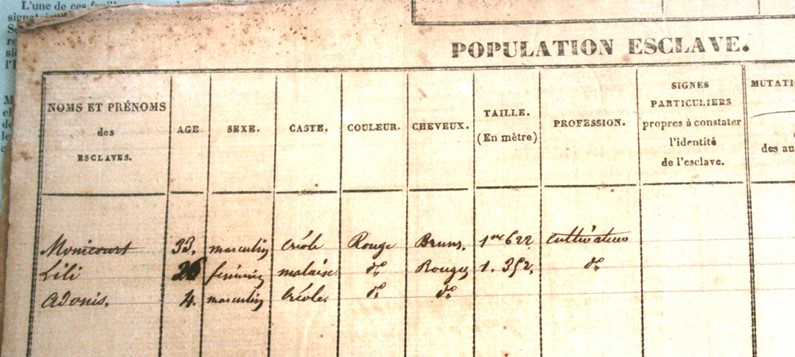 L'une de ces
POPULATION ESCLAVE.
NOMS ET PRÉNOMS
des
ESCLAVES.
AGE
SEXE.
CASTE.
COULEUR.
CHEVEUX.
TAILLE.
(En mètre)
PROFESSION.
SIGNES
PARTICULIERS
propres à constater
l'identité
de l'esclave.
MUTATIO
des au
Monicourt 33. masculin Créole Rouge Bruns. 1m 622 Cultivateur
Lili 26 féminin malaise do Rouges 1. 352. do
Adonis. 4. masculin Créole do do